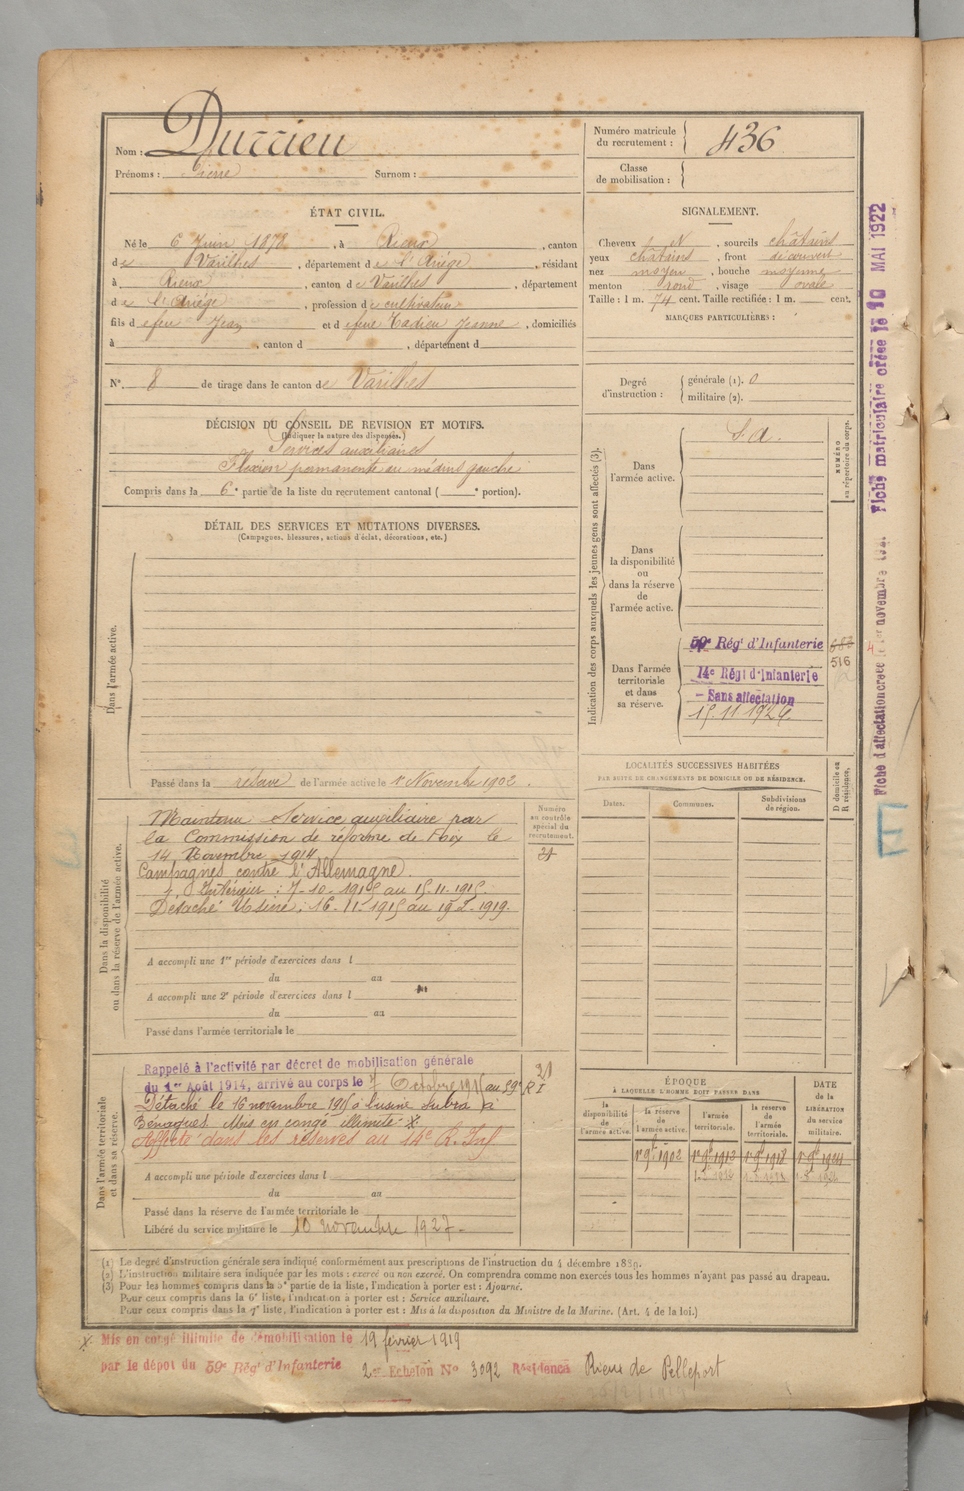 Nom : Durrieu
Prénoms : Pierre Surnom :
Numéro matricule du recrutement : 436
Classe de mobilisation :
ÉTAT CIVIL.
Né le 6 Juin 1878, à Rieux, canton
de Varilhes, département de l'Ariège, résidant
à Rieux, canton de Varilhes, département
de l'Ariège, profession de cultivateur
fils de feu Jean et de feue Tadieu Jeanne, domiciliés
à , canton d , département d
N° 8 de tirage dans le canton de Varilhes
SIGNALEMENT.
Cheveux N, sourcils châtains
yeux châtains, front découvert
nez moyen, bouche moyenne
menton rond, visage ovale
Taille : 1 m. 74 cent. Taille rectifiée : 1 m. cent.
MARQUES PARTICULIÈRES :
Degré d'instruction : générale (1). 0
militaire (2).
DÉCISION DU CONSEIL DE REVISION ET MOTIFS.
(Indiquer la nature des dispenses.)
Services auxiliaires
Flexion permanente du médius gauche
Compris dans la 6e partie de la liste du recrutement cantonal ( e portion).
DÉTAIL DES SERVICES ET MUTATIONS DIVERSES.
(Campagnes, blessures, actions d'éclat, décorations, etc.)
Dans l'armée active.
Passé dans la réserve de l'armée active le 1er Novembre 1902.
Indication des corps auxquels les jeunes gens sont affectés (3).
NUMÉRO au répertoire du corps.
Dans l'armée active.
S. A.
Dans la disponibilité ou dans la réserve de l'armée active.
Dans l'armée territoriale et dans sa réserve.
59e Régt d'Infanterie
516
14e Régt d'Infanterie
- Sans affectation
15.11.1926
LOCALITÉS SUCCESSIVES HABITÉES
PAR SUITE DE CHANGEMENTS DE DOMICILE OU DE RÉSIDENCE.
Dates. Communes. Subdivisions de région.
D domicile ou R résidence.
Dans la disponibilité ou dans la réserve de l'armée active.
Numéro au contrôle spécial du recrutement.
Maintenu Service auxiliaire par
la Commission de réforme de Foix le
14 Novembre 1914
Campagnes contre l'Allemagne.
Intérieur : 7-10-1915 au 15.11.1915.
Détaché Usine : 16.11.1915 au 19.2.1919.
A accompli une 1re période d'exercices dans l
du au
A accompli une 2e période d'exercices dans l
du au
Passé dans l'armée territoriale le
Dans l'armée territoriale et dans sa réserve.
Rappelé à l'activité par décret de mobilisation générale
du 1er Août 1914, arrivé au corps le 7 Octobre 1915 (au 59e R I
Détaché le 16 novembre 1915 à l'usine Subra à
Bénagues Mis en congé illimité X
Affecté dans les réserves au 14e R. Inf.
A accompli une période d'exercices dans l
du au
Passé dans la réserve de l'armée territoriale le
Libéré du service militaire le 10 novembre 1927.
ÉPOQUE
À LAQUELLE L'HOMME DOIT PASSER DANS
DATE de la LIBÉRATION du service militaire.
la disponibilité de l'armée active. la réserve de l'armée active. l'armée territoriale. la réserve de l'armée territoriale.
1er 9bre 1902 1er 9bre 1912 1er 9bre 1918 1er 9bre 1924
(1) Le degré d'instruction générale sera indiqué conformément aux prescriptions de l'instruction du 4 décembre 1889.
(2) L'instruction militaire sera indiquée par les mots : exercé ou non exercé. On comprendra comme non exercés tous les hommes n'ayant pas passé au drapeau.
(3) Pour les hommes compris dans la 5e partie de la liste, l'indication à porter est : Ajourné.
Pour ceux compris dans la 6e liste, l'indication à porter est : Service auxiliaire.
Pour ceux compris dans la 7e liste, l'indication à porter est : Mis à la disposition du Ministre de la Marine. (Art. 4 de la loi.)
X Mis en congé illimité de démobilisation le 19 février 1919
par le dépôt du 59e Régt d'Infanterie 2e Echelon No 3092 Résidence Rieux de Pelleport
Fiche matriculaire créée le 10 MAI 1922